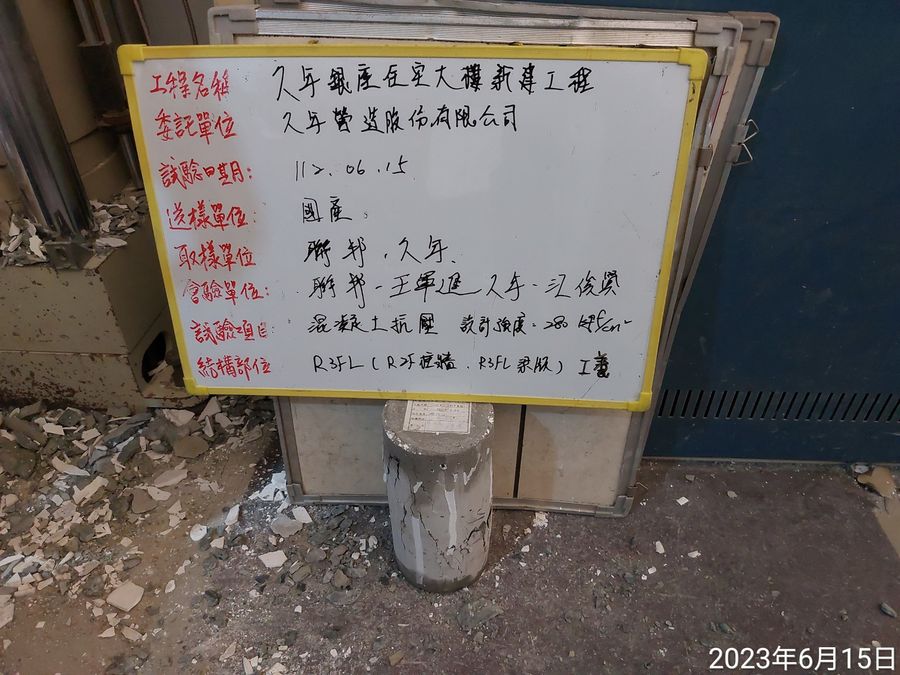 工程名稱 久年銀座住宅大樓新建工程
委託單位 久年營造股份有限公司
試驗日期: 112.06.15.
送樣單位: 國產。
取樣單位 聯邦、久年、
會驗單位: 聯邦-王軍進 久年-江俊賢
試驗項目: 混凝土抗壓 設計強度=280 kgf/cm²
結構部位 R3FL(R2F柱牆、R3FL梁版) 工養
2023年6月15日